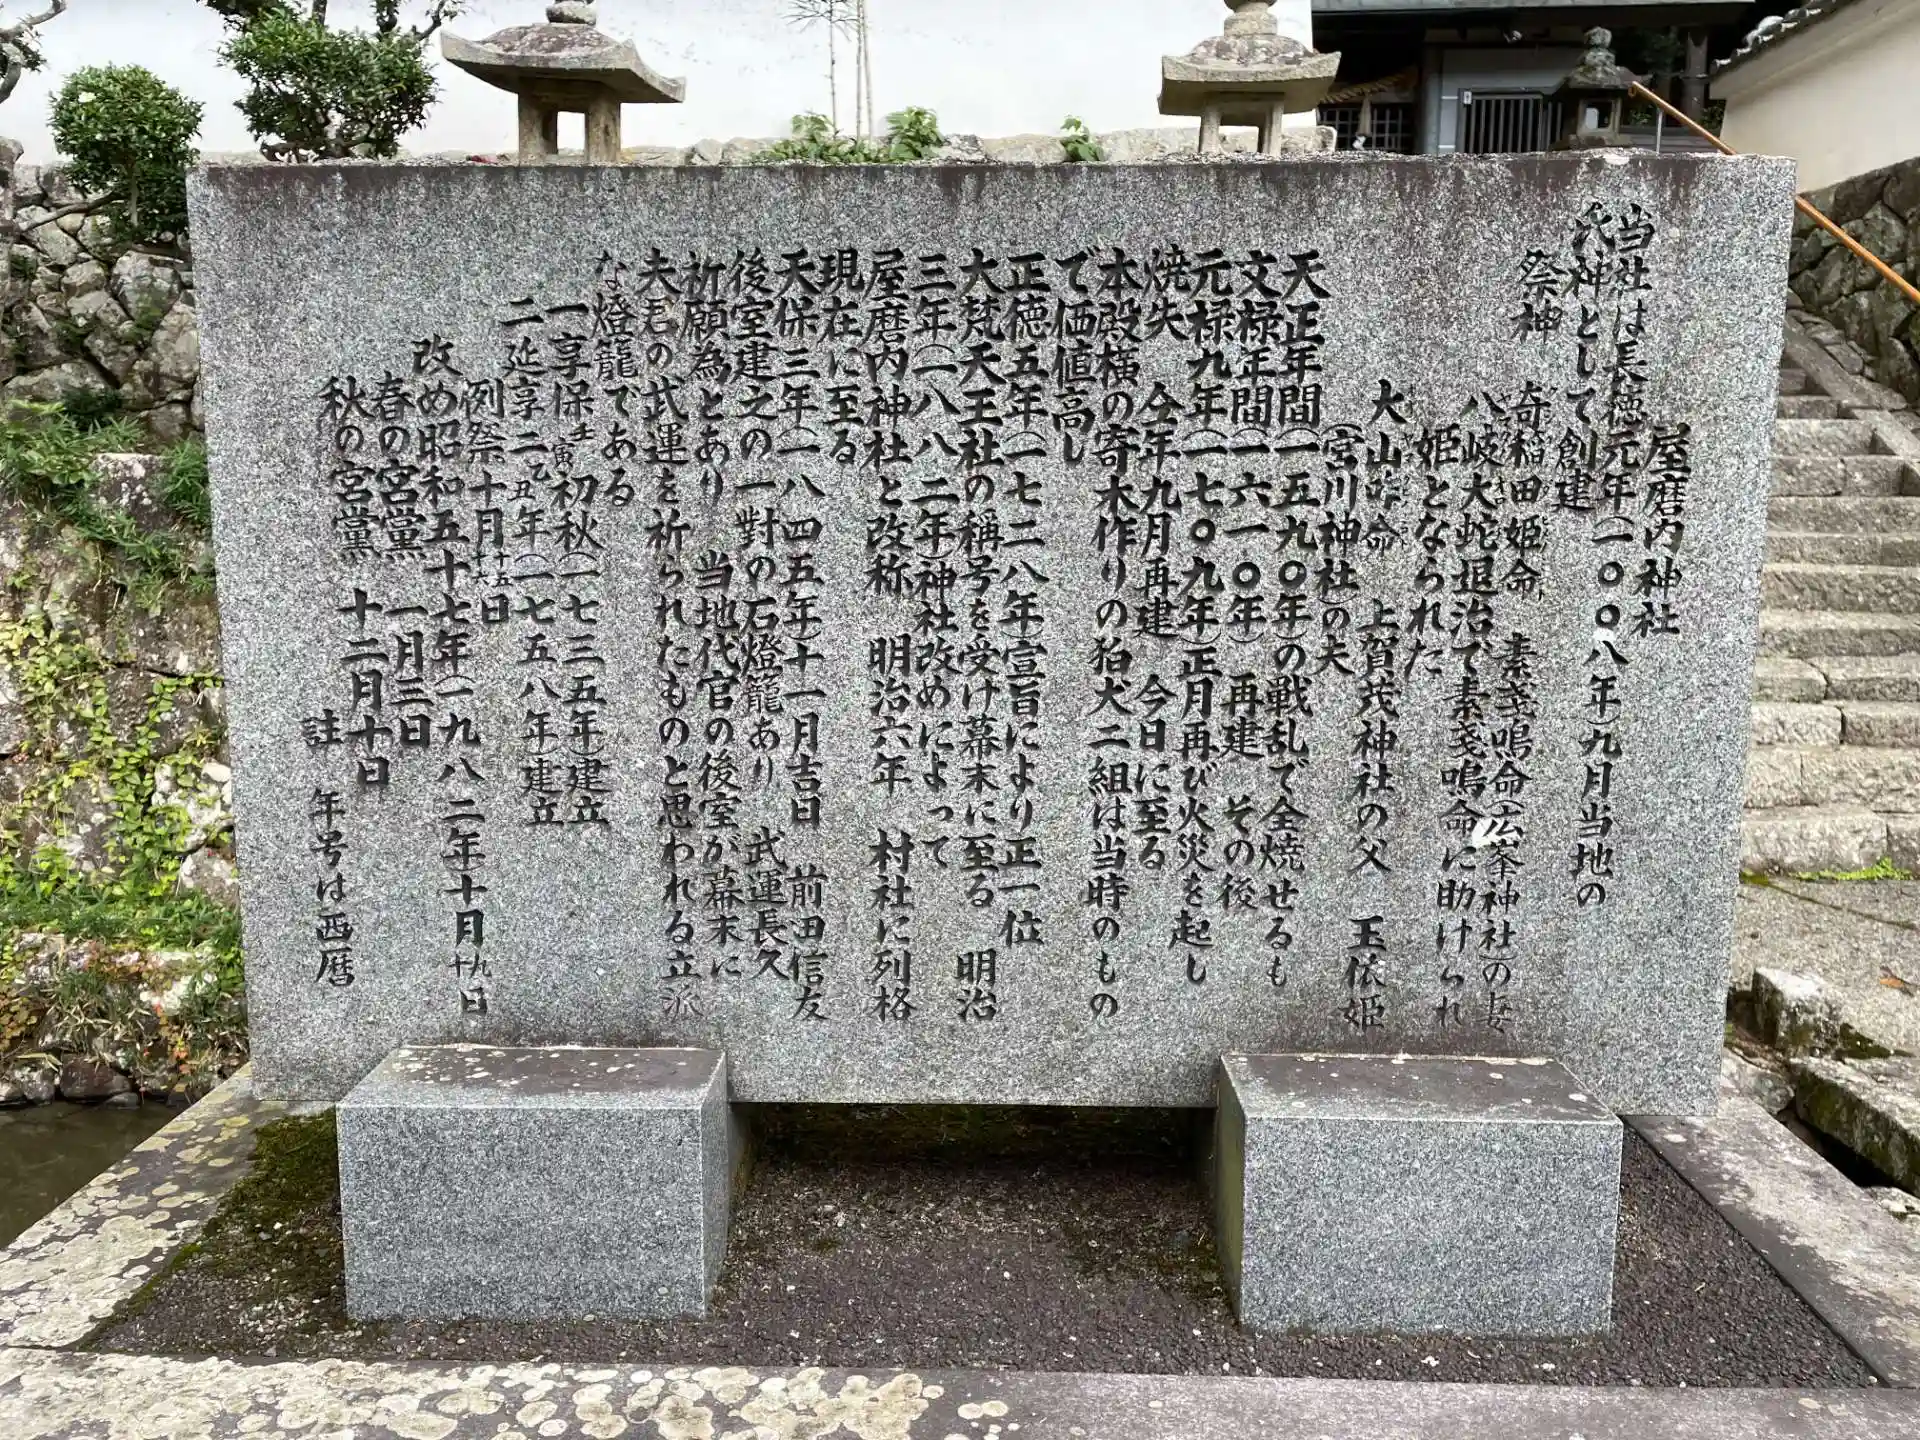 屋磨内神社
当社は長徳元年(一〇〇八年)九月当地の
氏神として創建
祭神 奇稲田姫命 素戔鳴命(広峯神社)の妻
八岐大蛇退治で素戔鳴命に助けられ
姫となられた
大山咋命 上賀茂神社の父 玉依姫
(宮川神社)の夫
天正年間(一五九〇年)の戦乱で全焼せるも
文禄年間(一六一〇年)再建 その後
元禄九年(一七〇九年)正月再び火災を起し
焼失 今年九月再建 今日に至る
本殿横の寄木作りの狛犬二組は当時のもの
で価値高し
正徳五年(一七二八年)宣旨により正一位
大梵天王社の稱号を受け幕末に至る 明治
三年(一八八二年)神社改めによって
屋磨内神社と改称 明治六年 村社に列格
現在に至る
天保三年(一八四五年)十一月吉日 前田信友
後室建之の一對の石燈籠あり 武運長久
祈願為とあり 当地代官の後室が幕末に
夫君の武運を祈られたものと思われる立派
な燈籠である
一享保壬寅初秋(一七三五年)建立
二延享二乙丑年(一七五八年)建立
例祭十月十五十六日
改め昭和五十七年(一九八二年十月十九日
春の宮黨 一月三日
秋の宮黨 十二月十日
註 年号は西暦